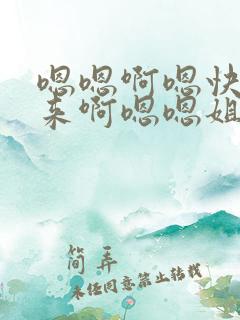 嗯嗯啊嗯快
来啊嗯嗯姐
简弄
未经同意禁止转载